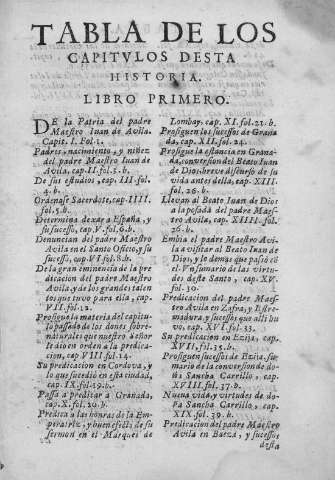 TABLA DE LOS
CAPITVLOS DESTA
HISTORIA.
LIBRO PRIMERO.
DE la Patria del padre
Maestro Iuan de Avila.
Capit. I. Fol. 1.
Padres, nacimiento, y niñez
del padre Maestro Iuan de
Avila, cap. II. fol. 3. b.
De sus estudios, cap. III. fol.
4. b.
Ordenase Sacerdote, cap. IIII.
fol. 5. b.
Determina dexar a España, y
su sucesso, cap. V. fol. 6. b.
Denuncian del padre Maestro
Avila en el Santo Oficio, y su
sucesso, cap. VI. fol. 8. b.
De la gran eminencia de la pre
dicacion del padre Maestro
Avila, y de los grandes talen
tos que tuvo para ella, cap.
VII. fol. 12.
Prosigue la materia del capitu
lo passado de los dones sobre-
naturales que nuestro señor
le dio en orden a la predica-
cion, cap. VIII. fol. 14.
Su predicacion en Cordova, y lo
que sucedió en esta ciudad,
cap. IX. fol. 19. b.
Passa a predicar a Granada,
cap. X. fol. 20. b.
Predica a las honras de la Em-
peratriz, y buen efeto de su
sermon en el Marques de
Lombay, cap. XI. fol. 22. b.
Prosiguen los sucessos de Grana
da, cap. XII. fol. 24.
Prosigue la estancia en Grana-
da, conversion del Beato Iuan
de Dios: breve discurso de su
vida antes della, cap. XIII.
fol. 26. b.
Llevan al Beato Iuan de Dios
a la posada del padre Maes-
tro Avila, cap. XIIII. fol.
26. b.
Embia el padre Maestro Avi
la a visitar al Beato Iuan de
Dios, y lo demas que passó con
el. Vn sumario de las virtu-
des deste Santo, cap. XV.
fol. 30.
Predicacion del padre Maes-
tro Avila en Zafra, y Estre-
madura, y sucessos que alli hu
vo, cap. XVI. fol. 33.
Su predicacion en Ezija, cap.
XVII. fol. 35. b.
Prosiguen sucessos de Ezija. su-
mario de la conversion de do-
ña Sancha Carrillo, cap.
XVIII. fol. 37. b.
Nueva vida, y virtudes de do-
ña Sancha Carrillo, cap.
XIX. fol. 39. b.
Predicacion del padre Maestro
Avila en Baeza, y sucessos
desta